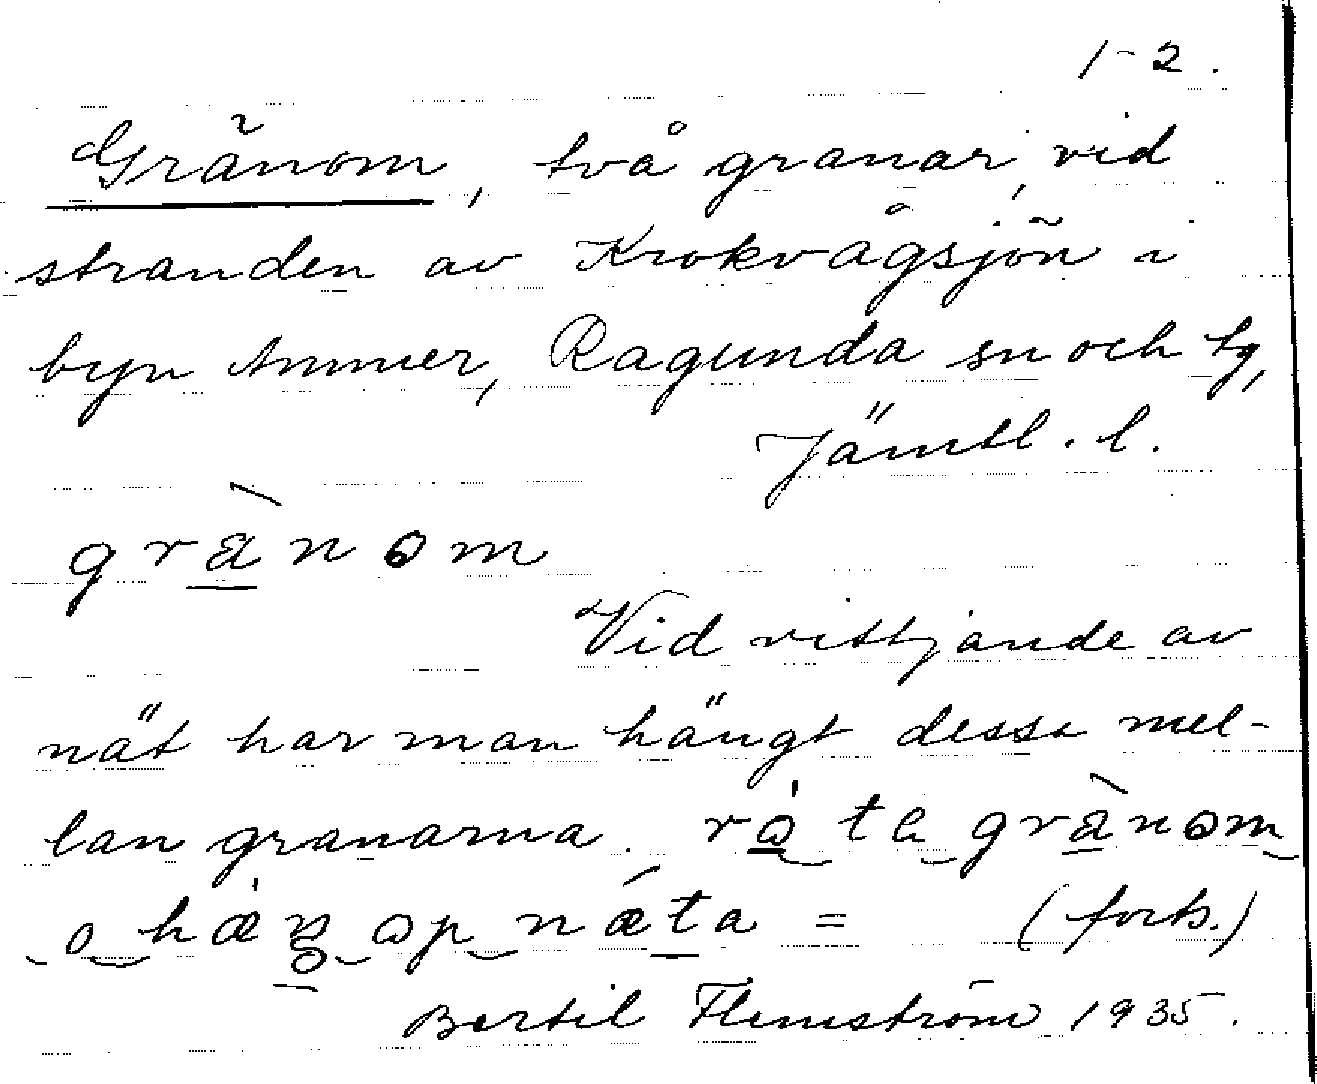 1-2.
Grãnom, två granar, vid
stranden av Krokvågsjön i
byn Ammer, Ragunda sn och tg,
Jämtl. l.
grànom
Vid vittjande av
nät har man hängt dessa mel-
lan granarna.
(forts.)
Bertil Flemström 1935.